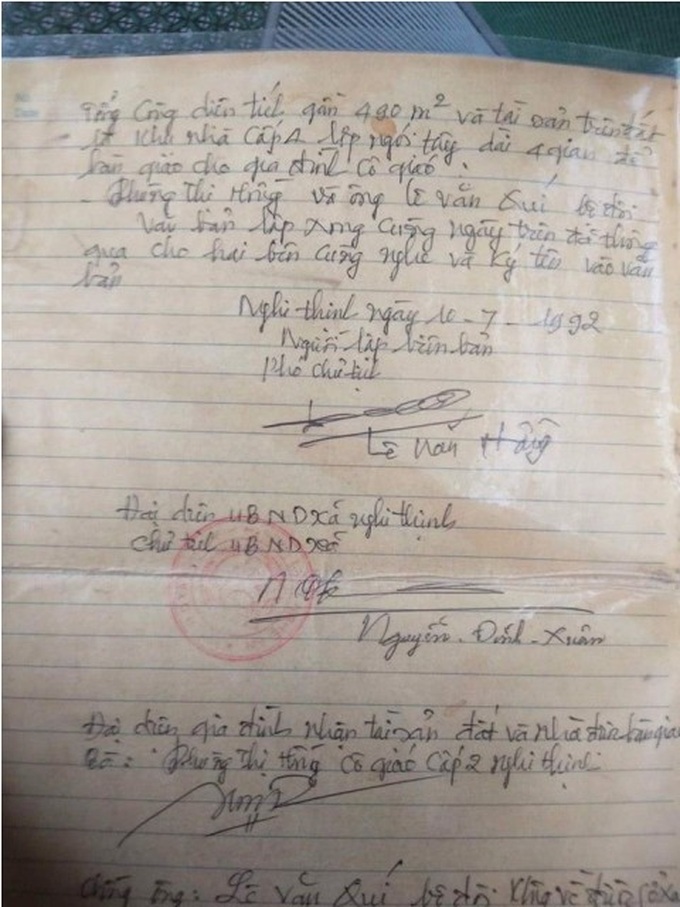 Tổng Cộng diên tiếl gần 490 m² và tài sản trên đất
là khu nhà cấp 4 lập ngói tây dài 4 gian để
bàn giao cho gia đình cô giáo:
- Phùng Thị Hồng và ông Lê văn Quí bộ đội
Văn bản lập xong cùng ngày trên đã thông
qua cho hai bên cùng nghe và ký tên vào văn
bản
Nghi thịnh ngày 10 - 7 - 1992
Người lập biên bản
Phó chủ tịch
Lê văn
Đại diện UBND xã nghi thịnh
Chủ tịch UBND xã
Nguyễn - Đình - Xuân
Đại diện gia đình nhận tài sản đất và nhà được bàn giao
Bà: Phùng Thị Hồng Cô giáo Cấp 2 nghi thịnh
Chồng ông: Lê văn Quí bộ đội không về được